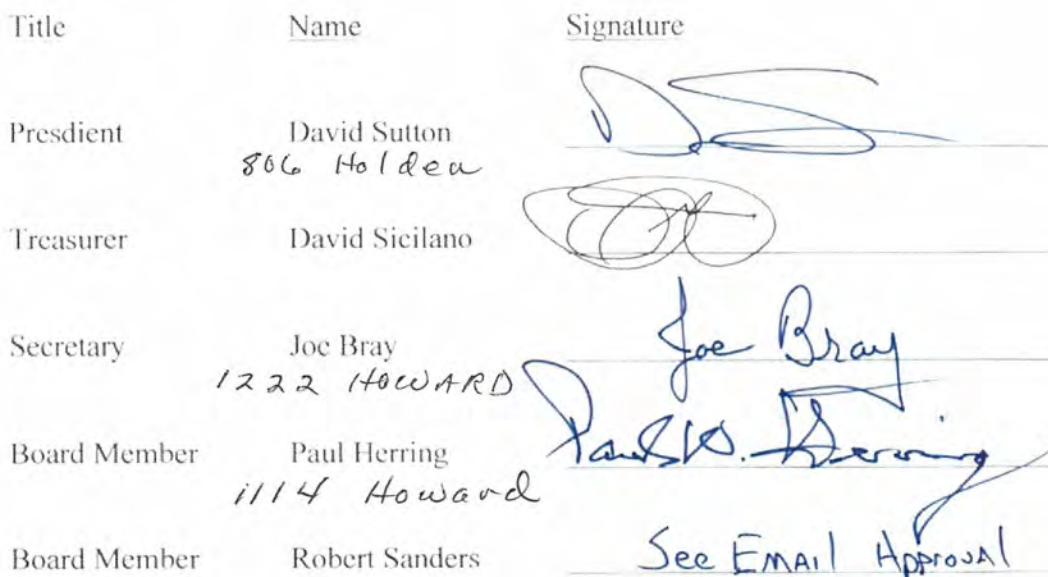 Title Name Signature
Presdient David Sutton
806 Holden
Treasurer David Sicilano
Secretary Joe Bray Joe Bray
1222 HOWARD
Board Member Paul Herring Paul W. Herring
1114 Howard
Board Member Robert Sanders See EMAIl Approval